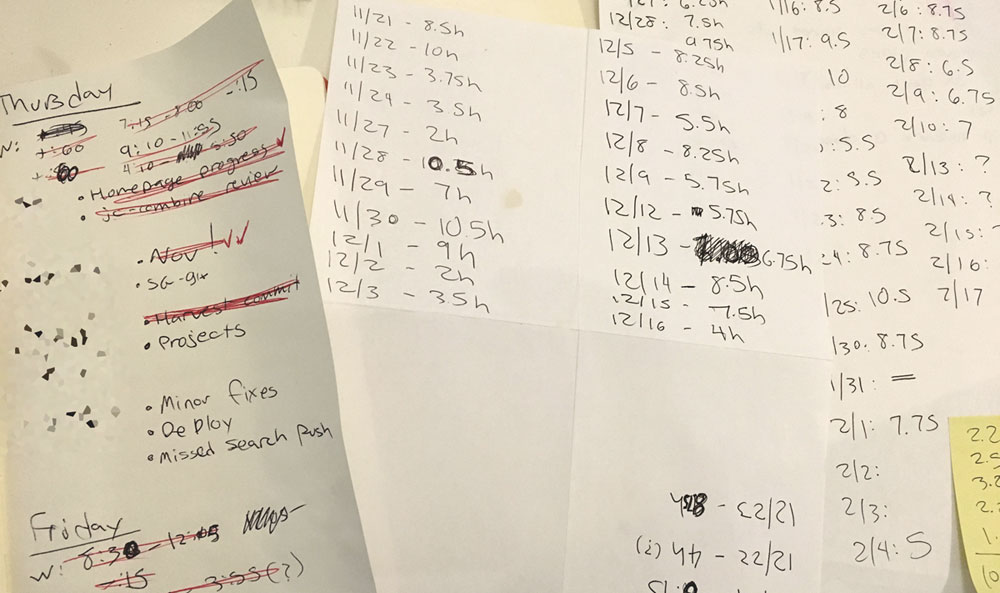 Thursday
7:15 - 8:00 - :15
W:
+:60 9:10 - 11:55
4:10 - 5:30
• Homepage progress ✓
• jc-combine review
• Nov! ✓✓
• SG-gix
• Harvest commit
• Projects
• Minor fixes
• Deploy
• Missed search push
Friday
8:30 - 12:05
W:
-:15 3:55 (?)
11/21 - 8.5h
11/22 - 10h
11/23 - 3.75h
11/24 - 3.5h
11/27 - 2h
11/28 - 10.5h
11/29 - 7h
11/30 - 10.5h
12/1 - 9h
12/2 - 2h
12/3 - 3.5h
12/28: 7.5h
9.75h
12/5 - 8.25h
12/6 - 8.5h
12/7 - 5.5h
12/8 - 8.25h
12/9 - 5.75h
12/12 - 5.75h
12/13 - 6.75h
12/14 - 8.5h
12/15 - 7.5h
12/16 - 4h
12/23 -
12/22 - 4h (?)
1/16: 8.5
1/17: 9.5
10
: 8
: 5.5
2: 5.5
3: 8.5
24: 8.75
1/25: 10.5
1/30: 8.75
1/31: =
2/1: 7.75
2/2:
2/3:
2/4: 5
2/6: 8.75
2/7: 8.75
2/8: 6.5
2/9: 6.75
2/10: 7
2/13: ?
2/14: ?
2/15:
2/16:
2/17